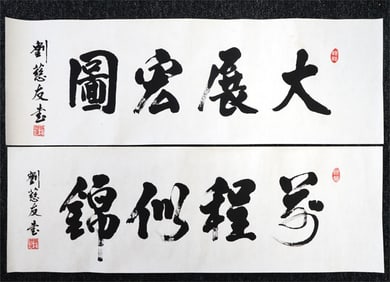 大展宏圖
劉慈友書
前程似錦
劉慈友書